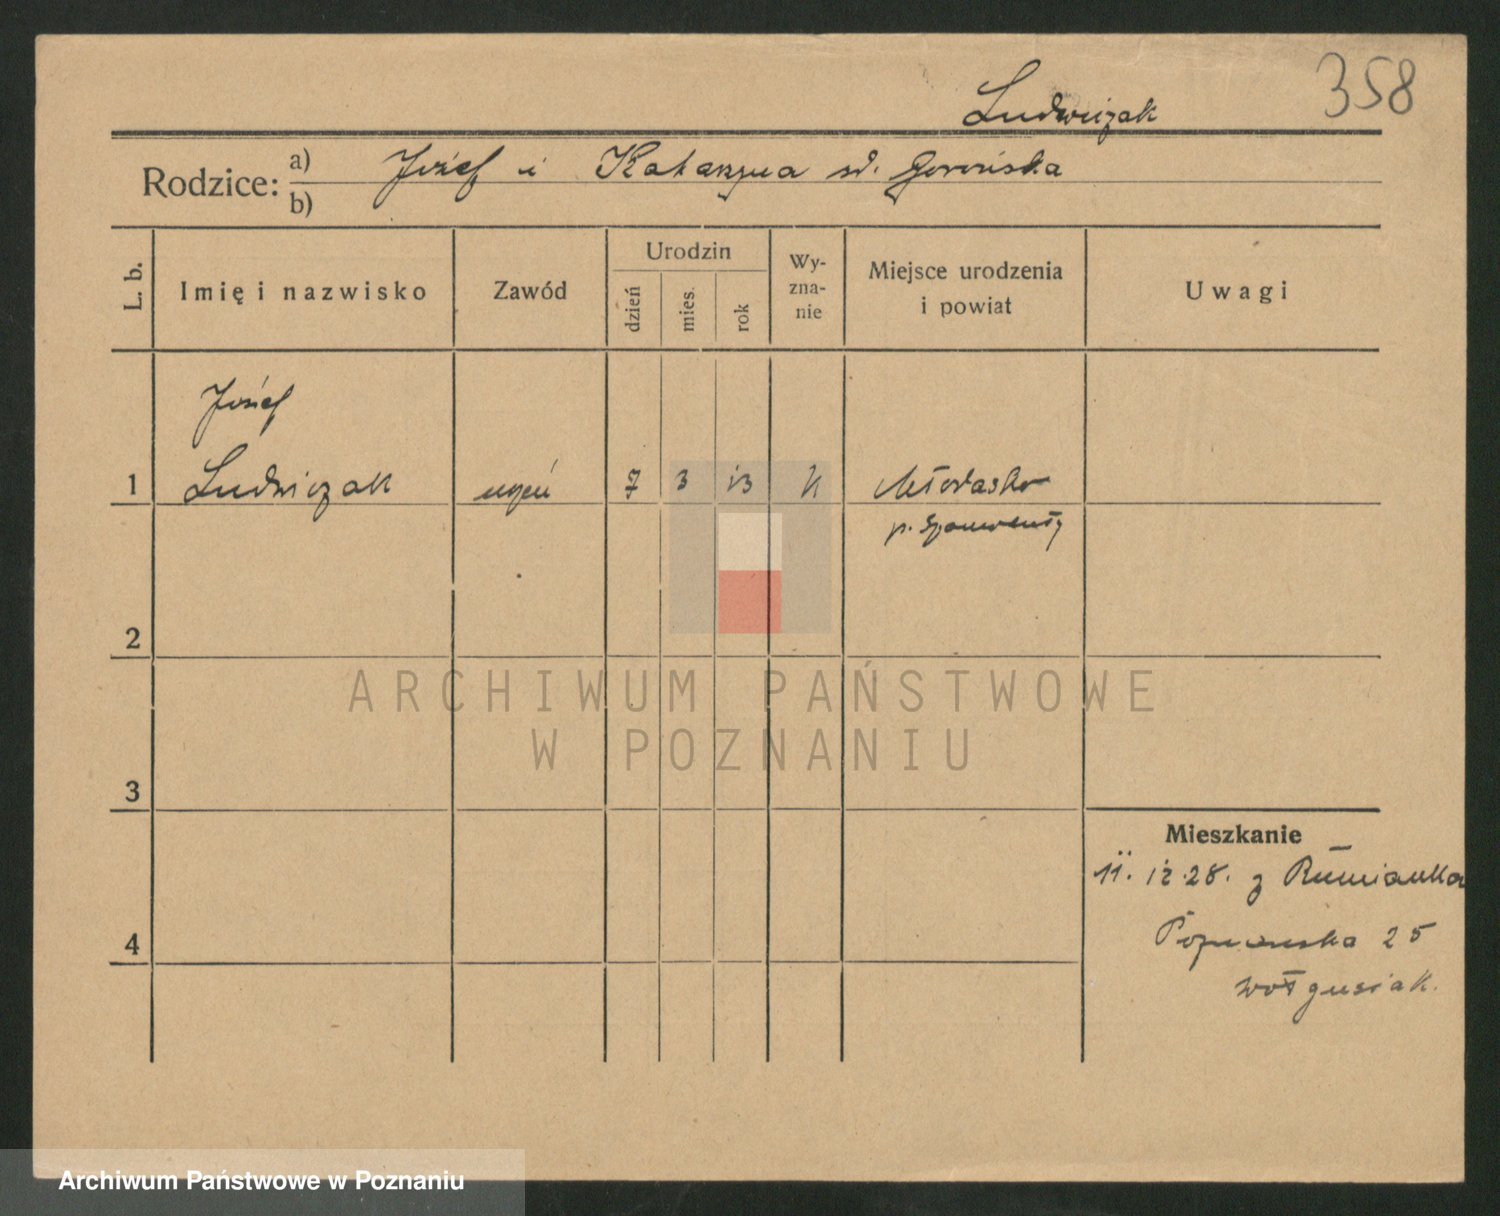 358
Ludwiczak
Rodzice: a) Józef i Katarzyna
b)
L. b.
Imię i nazwisko
Zawód
Urodzin
dzień
mies.
rok
Wy-
zna-
nie
Miejsce urodzenia
i powiat
Uwagi
Józef
1 Ludwiczak uczeń 7 3 13 k Młodasko
p. Szamotuły
2
3
4
Mieszkanie
11. 12. 28. z Rumianka
Poznańska 25
ARCHIWUM PAŃSTWOWE
W POZNANIU
Archiwum Państwowe w Poznaniu